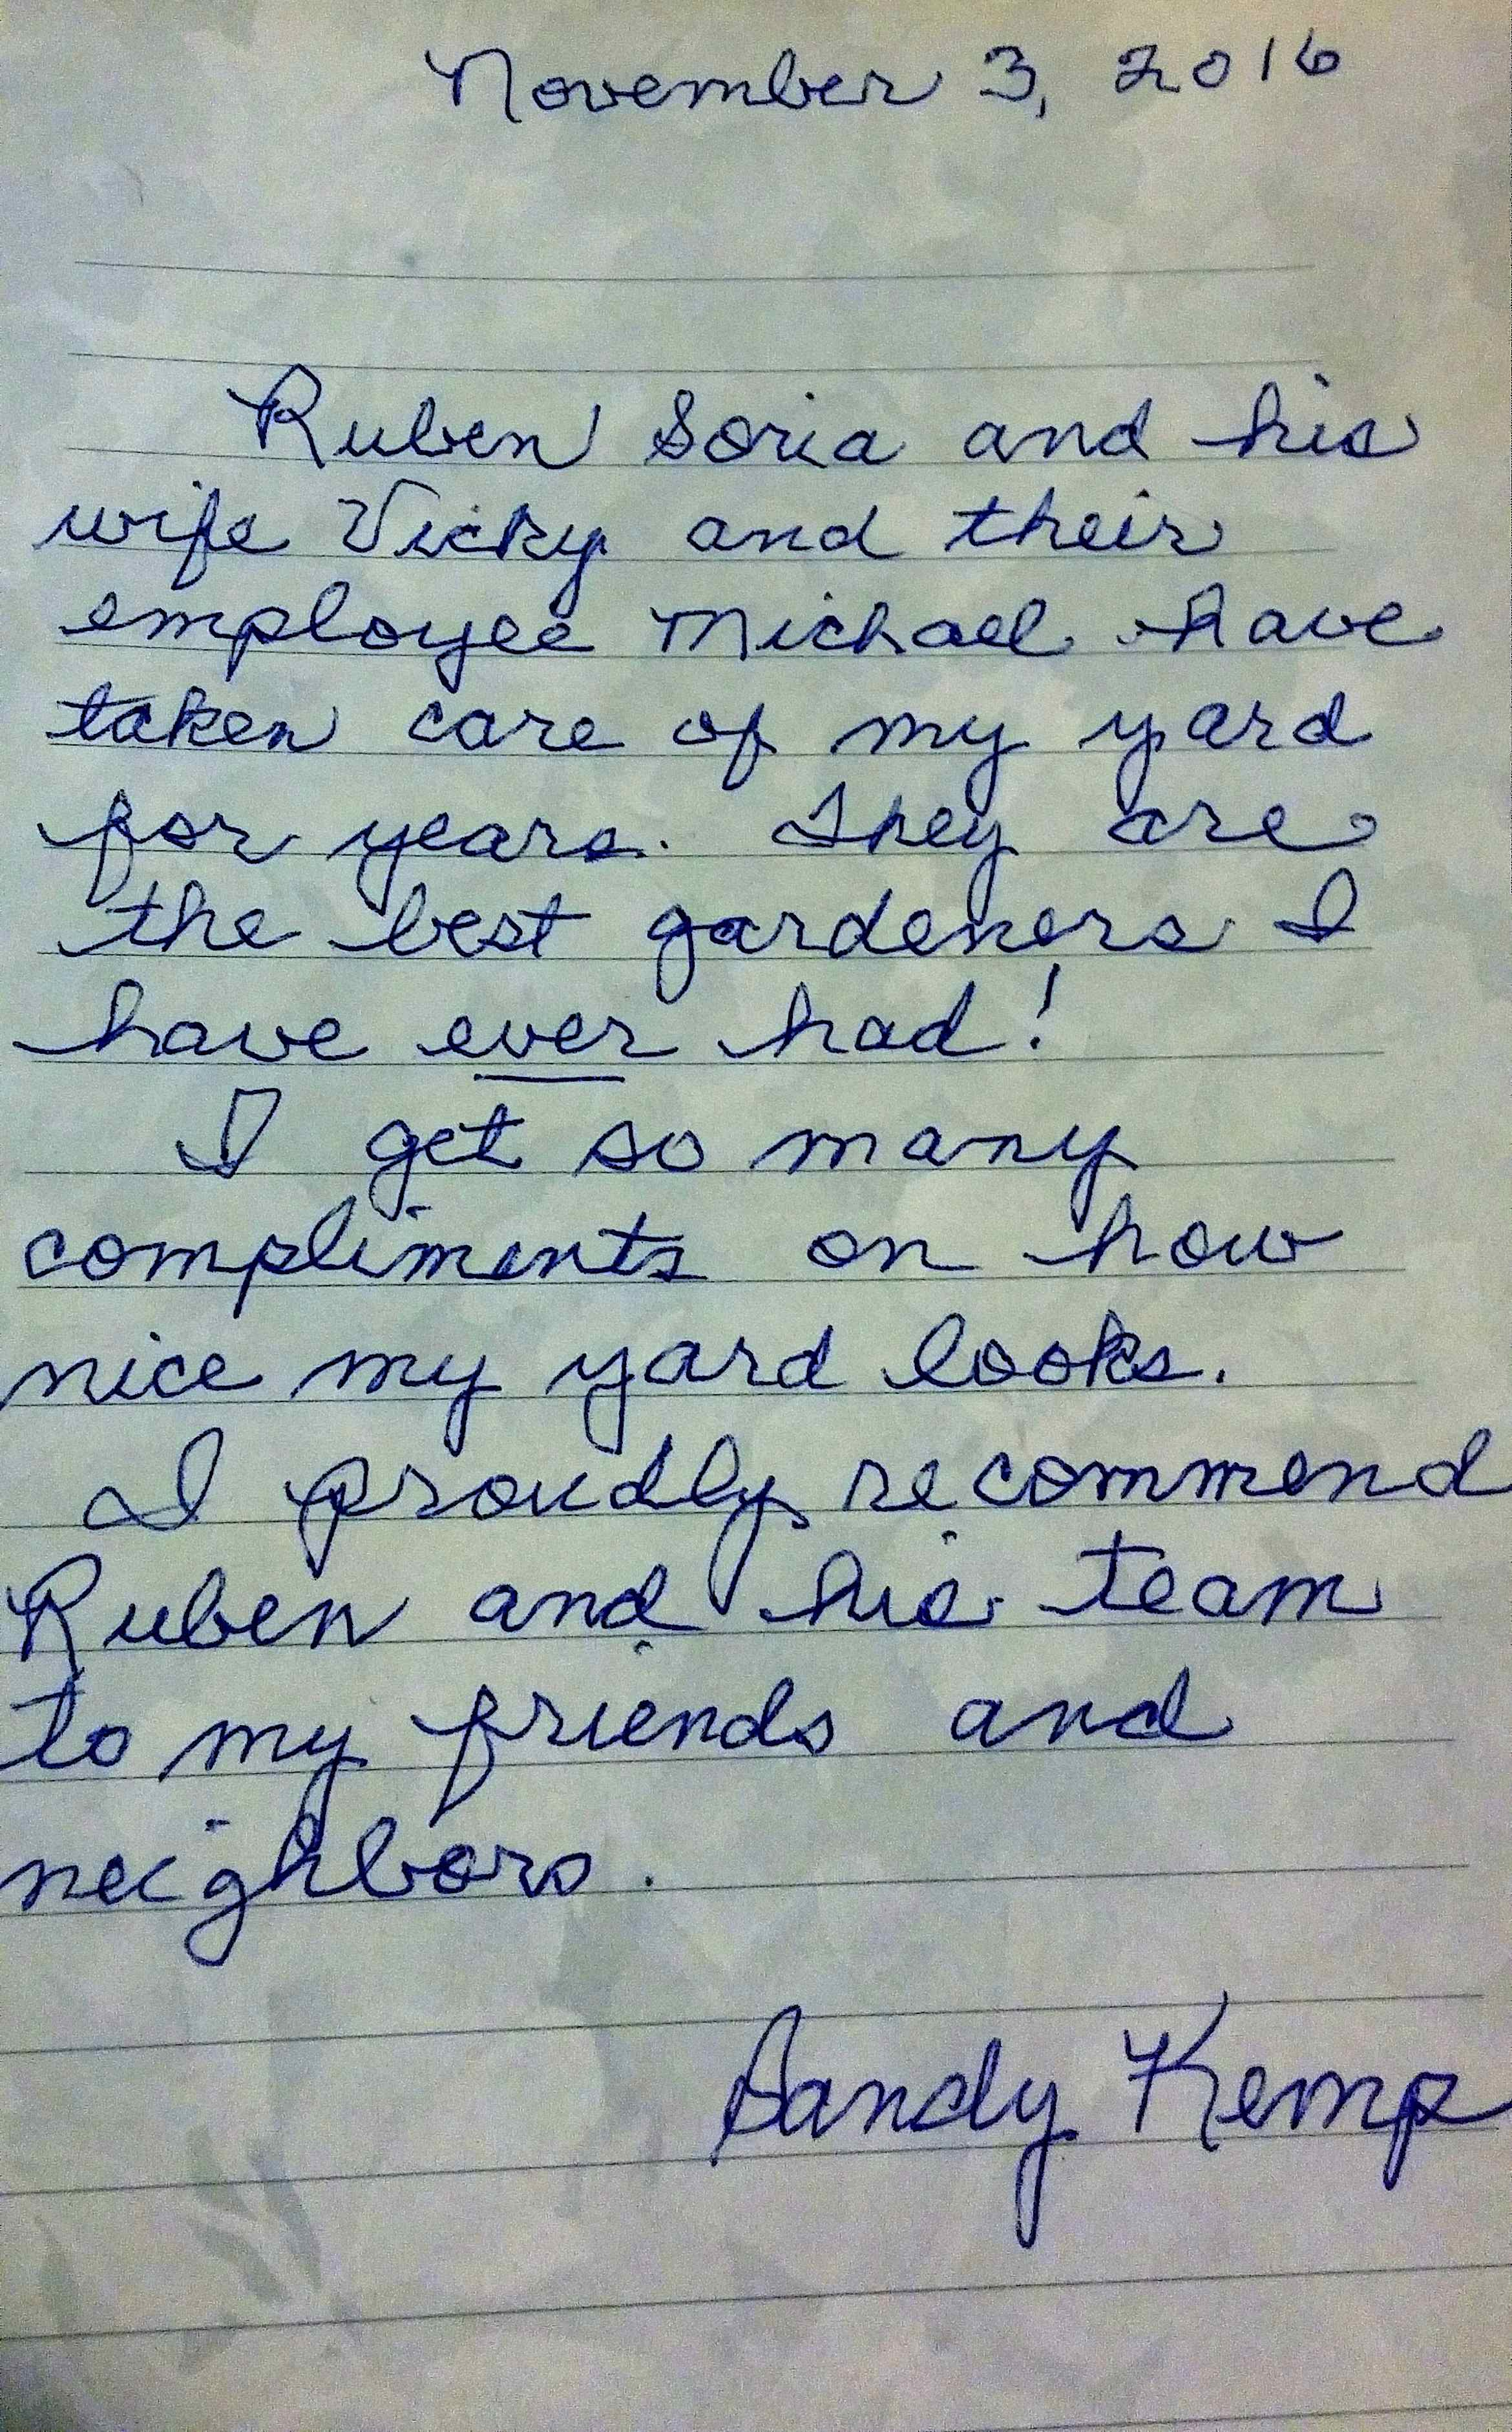 November 3, 2016
Ruben Soria and his
wife Vicky and their
employee Michael have
taken care of my yard
for years. They are
the best gardeners I
have ever had!
I get so many
compliments on how
nice my yard looks.
I proudly recommend
Ruben and his team
to my friends and
neighbors.
Sandy Kemp